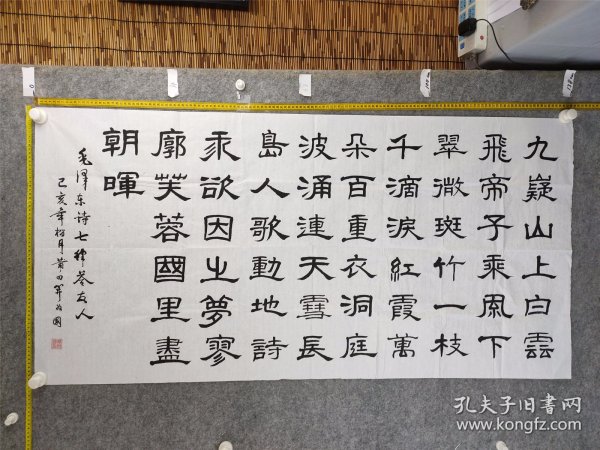 九嶷山上白雲
飛帝子乘風下
翠微斑竹一枝
千滴淚紅霞萬
朵百重衣洞庭
波涌連天雪長
島人歌動地詩
我欲因之夢寥
廓芙蓉國里盡
朝暉
毛澤东诗七律答友人
己亥年
孔夫子旧书网
www.kongfz.com